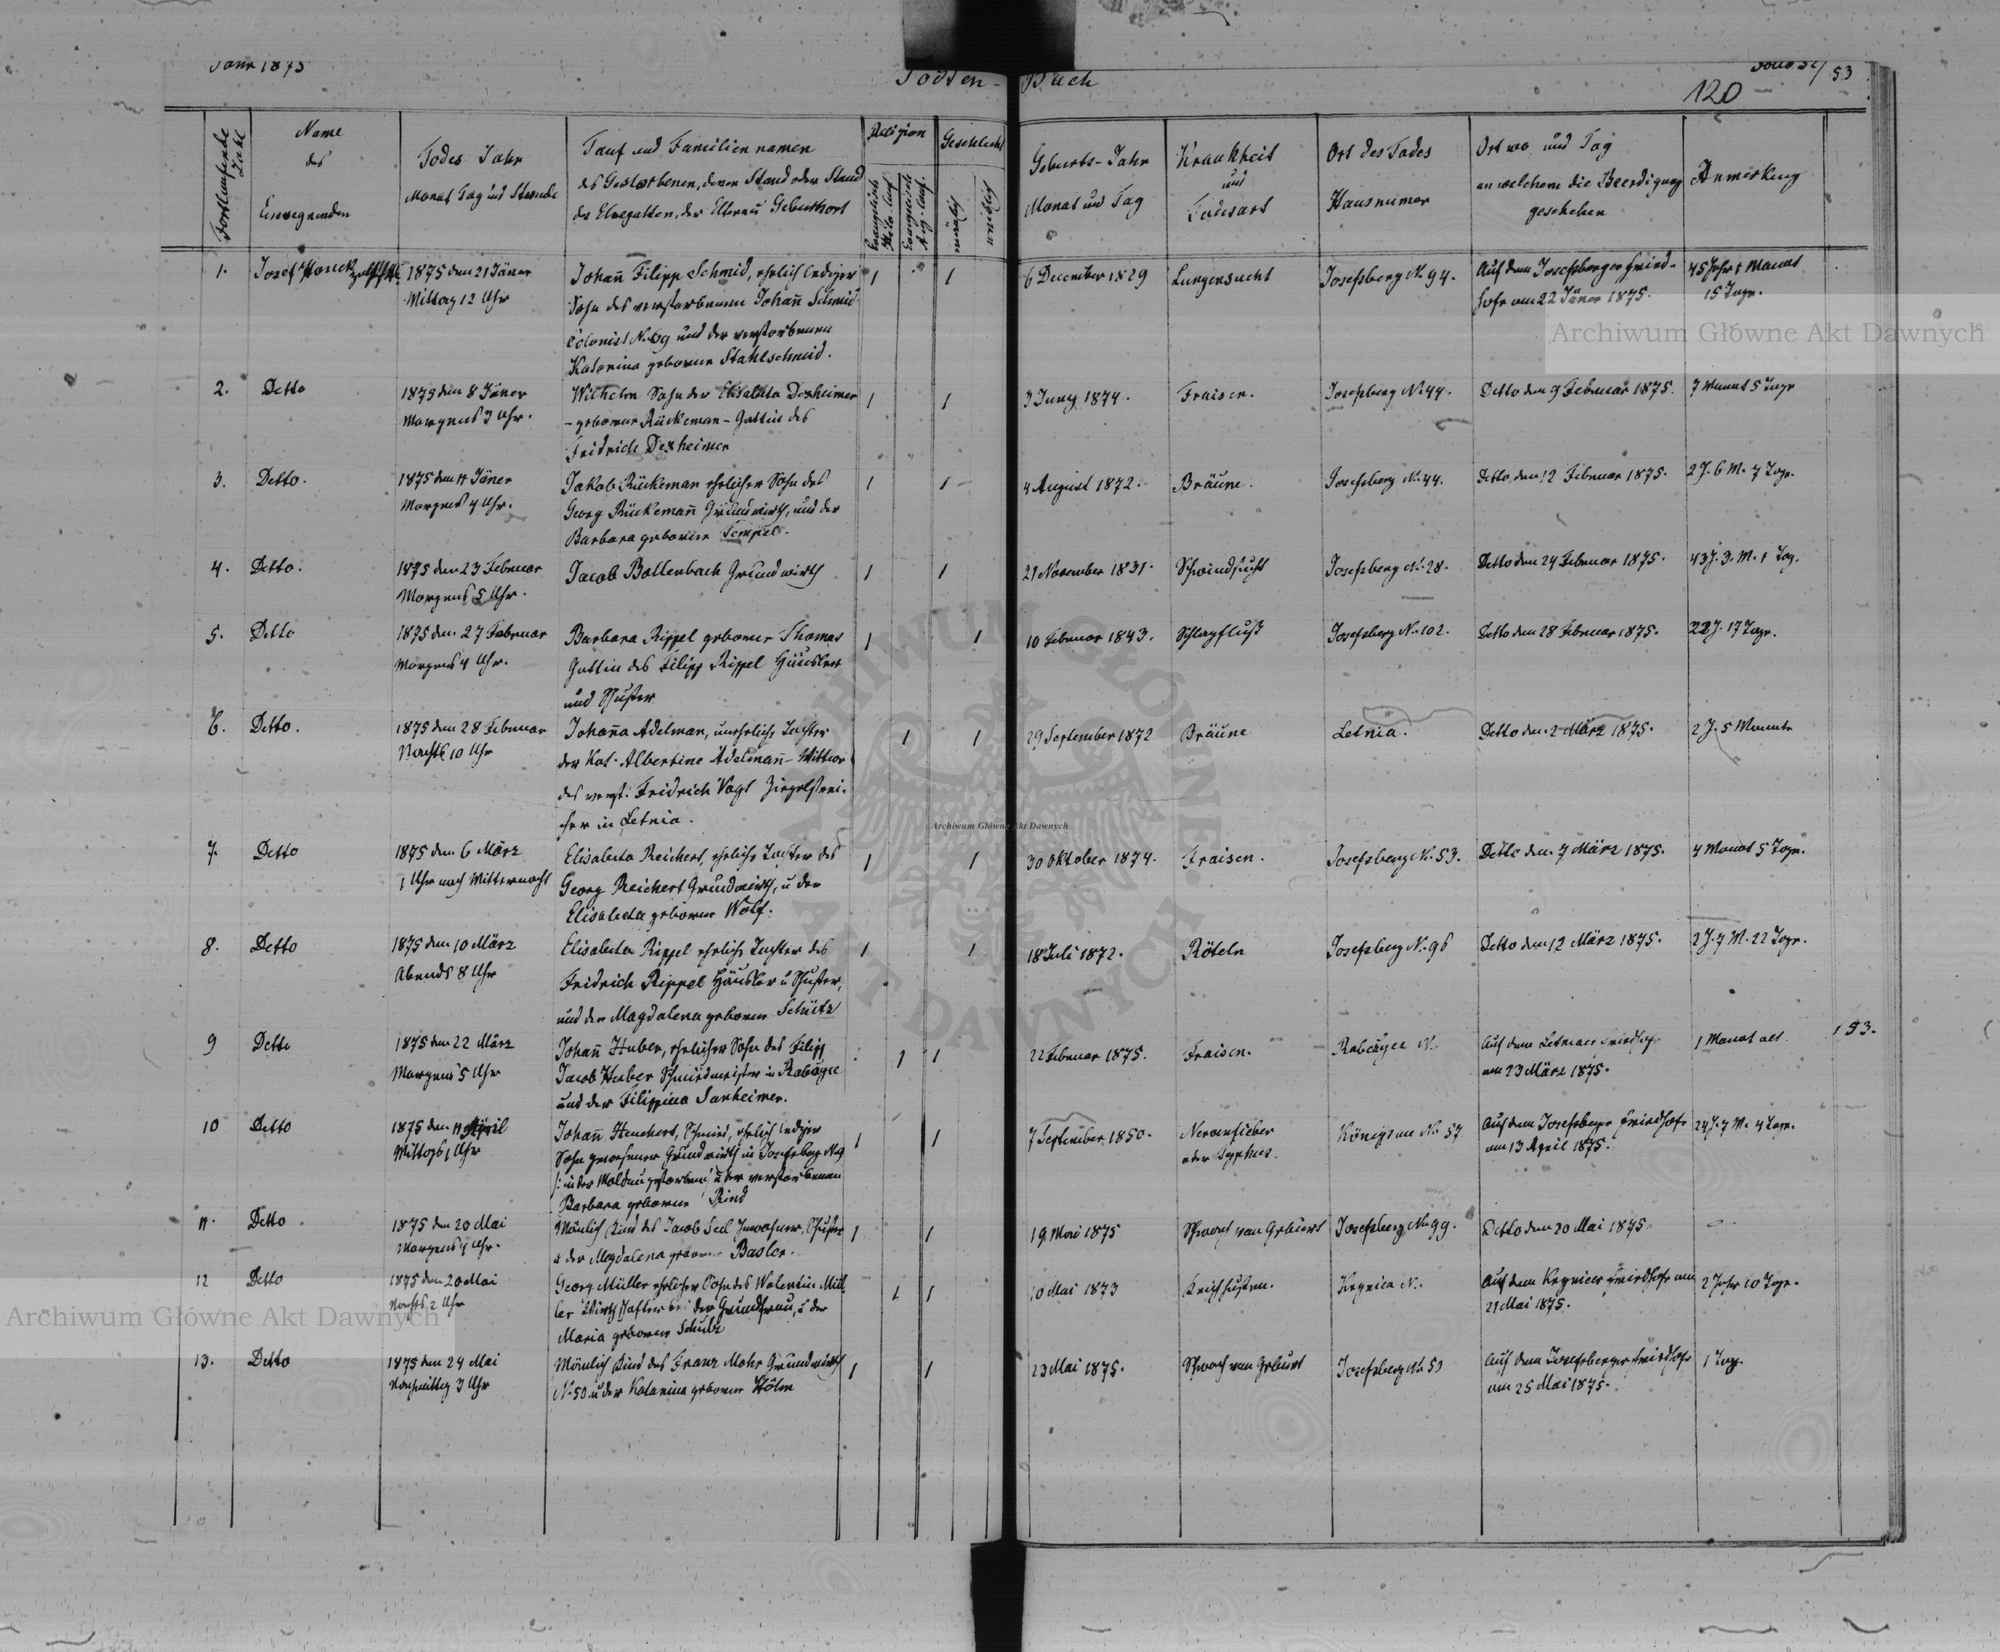 Jahr 1875
Todten-Buch
53
120
Fortlaufende Zahl
Name
des
Einsegnenden
Todes Jahr
Monat Tag und Stunde
Tauf und Familien namen
des Gestorbenen, deren Stand oder Stand
des Ehegatten, der Eltern u Geburtsort
Religion
Evangelisch Helv. Conf.
Evangelisch Aug. Conf.
Geschlecht
mänlich
weiblich
Geburts-Jahr
Monat und Tag
Krankheit
und
Todesart
Ort des Todes
Hausnumer
Ort wo und Tag
an welchem die Beerdigung
geschehen
Anmerkung
1. Josef
1875 den 21 Jäner
Mittag 12 Uhr
Johañ Filipp Schmid, ehelich lediger
Sohn des verstorbenen Johañ Schmid
Colonist No 69 und der verstorbenen
Katarina geborene Stahlschmid.
1 1
6 December 1829
Lungensucht
Josefsberg No 94.
Auf dem Josefsberger Fried-
hofe am 22 Jäner 1875.
45 Jahr 1 Monat
15 Tage.
2. Detto
1875 den 8 Jäner
Morgens 3 Uhr.
Wilhelm Sohn der Elisabeta Dexheimer
- geborene Rückeman - Gattin des
Fridrich Dexheimer
1 1
3 Juny 1874.
Fraisen.
Josefsberg No 44.
Detto den 9 Februar 1875.
7 Monat 5 Tage
3. Detto.
1875 den 11 Jäner
Morgens 4 Uhr.
Jakob Rückeman ehelicher Sohn des
Georg Rückemañ Grundwirth, und der
Barbara geborene Tempel.
1 1
4 August 1872.
Bräune.
Josefsberg No 44.
Detto den 12 Februar 1875.
2 J. 6 M. 7 Tage.
4. Detto.
1875 den 23 Februar
Morgens 5 Uhr.
Jacob Bollenbach Grundwirth
1 1
21 November 1831.
Schwindsucht
Josefsberg No 28.
Detto den 24 Februar 1875.
43 J. 3. M. 1 Tag.
5. Detto
1875 den 27 Februar
Morgens 4 Uhr.
Barbara Rippel geborene Thomas
Gattin des Filipp Rippel Häusler
und Schuster
1 1
10 Februar 1843.
Schlagfluß
Josefsberg No 102.
Detto den 28 Februar 1875.
22 J. 17 Tage.
6. Detto.
1875 den 28 Februar
Nachts 10 Uhr
Johaña Adelman, uneheliche Tochter
der Kat. Albertine Adelmañ - Wittwe
des verst. Fridrich Vogt Ziegelstrei-
cher in Letnia.
1 1
29 September 1872
Bräune
Letnia.
Detto den 2 März 1875.
2 J. 5 Monate
7. Detto
1875 den 6 März
1 Uhr nach Mitternacht
Elisabeta Reichert, eheliche Tochter des
Georg Reichert Grundwirth, u der
Elisabeta geborene Wolf.
1 1
30 Oktober 1874.
Fraisen.
Josefsberg No. 53.
Detto den 7 März 1875.
4 Monat 5 Tage.
8. Detto
1875 den 10 März
Abends 8 Uhr
Elisabeta Rippel eheliche Tochter des
Fridrich Rippel Häusler u Schuster,
und der Magdalena geborene Schütz
1 1
18 Juli 1872.
Röteln
Josefsberg No. 96
Detto den 12 März 1875.
2 J. 7 M. 22 Tage.
9 Detto
1875 den 22 März
Morgens 5 Uhr
Johañ Huber, ehelicher Sohn des Filipp
Jacob Huber Schmiedmeister in Rabczyce
und der Filippina Sanheimer.
1 1
22 Februar 1875.
Fraisen.
Rabczyce N.
Auf dem Letniaer Friedhofe
am 23 März 1875.
1 Monat alt
153.
10 Detto
1875 den 11 April
Mittags 1 Uhr
Johañ Henchert, Schmied, ehelich lediger
Sohn gewesener Grundwirth in Josefsberg
/: in der Moldau gestorben/ u der verstorbenen
Barbara geborene Rind
1 1
7 September 1850.
Nervenfieber
oder Typhus.
Königsau No 57
Auf dem Josefsberger Friedhofe
am 13 April 1875.
24 J. 7 M. 4 Tage.
11. Detto
1875 den 20 Mai
Morgens 4 Uhr.
Mänlich Kind des Jacob Seel Inwohner, Schuster
u der Magdalena geborene Basler.
1 1
19 Mai 1875
Schwach von Geburt
Josefsberg No 99.
Detto den 20 Mai 1875
12 Detto
1875 den 20 Mai
Nachts 2 Uhr
Georg Müller ehelicher Sohn des Walentin Mül-
ler Wirthschafter bei der Grundfrau, u der
Maria geborene Schulz
1 1
10 Mai 1873
Keichhusten.
Krynica N.
Auf dem Krynicer Friedhofe am
21 Mai 1875.
2 Jahr 10 Tage.
13. Detto
1875 den 24 Mai
Nachmittag 3 Uhr
Mänlich Kind des Franz Mohr Grundwirth
No 50 u der Katarina geborene Höhn
1 1
23 Mai 1875.
Schwach von Geburt
Josefsberg No 50
Auf dem Josefsberger Friedhofe
am 25 Mai 1875.
1 Tag.
Archiwum Główne Akt Dawnych
Archiwum Główne Akt Dawnych
Archiwum Główne Akt Dawnych
ARCHIWUM GŁÓWNE AKT DAWNYCH